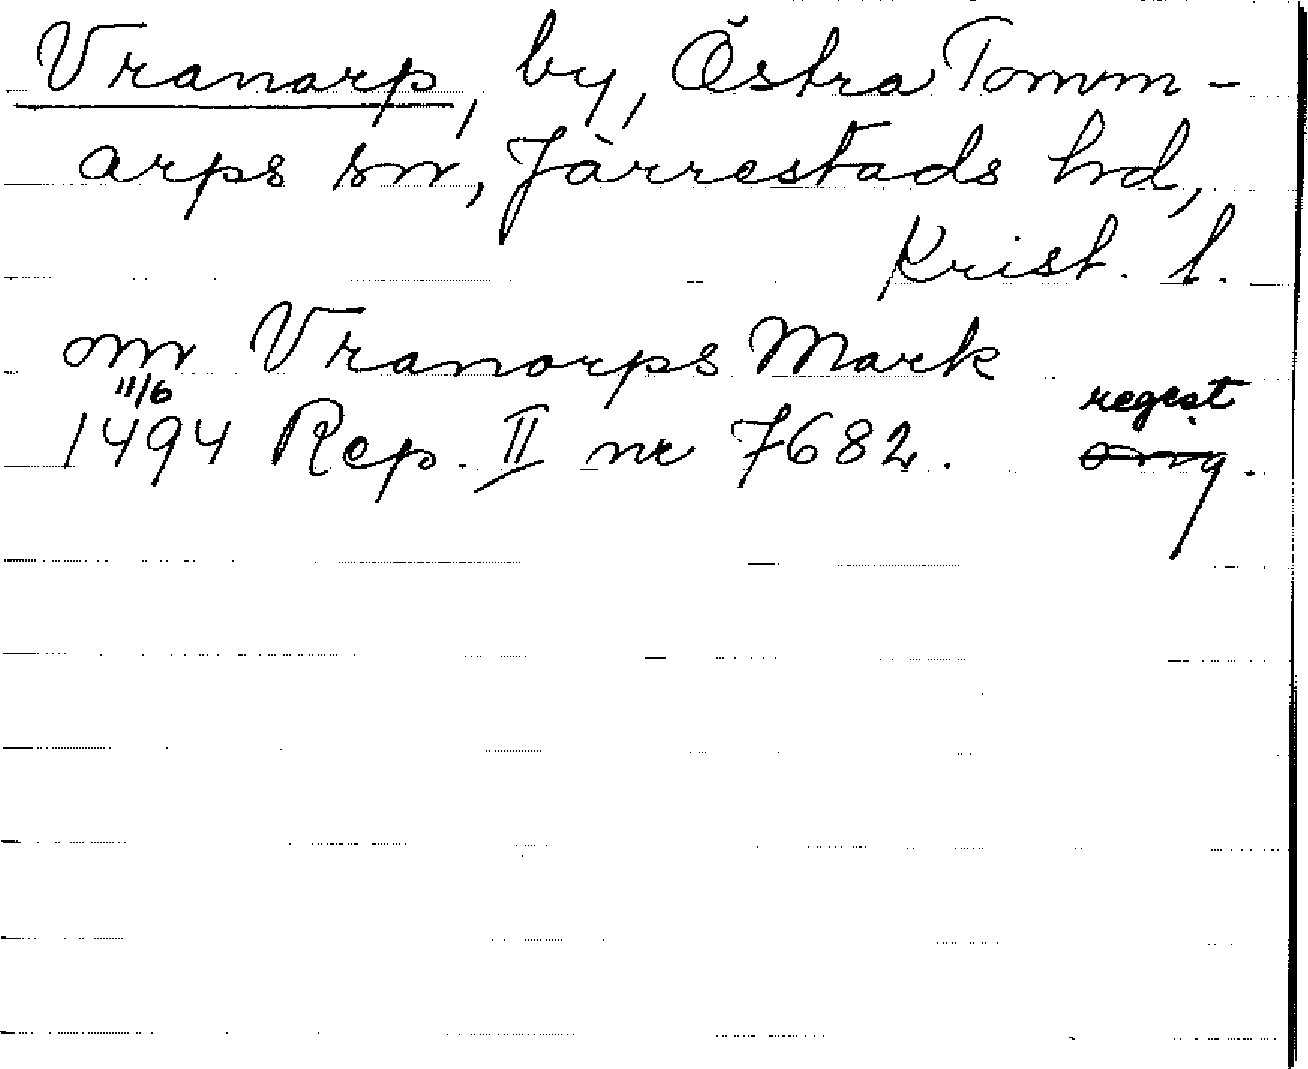 Vranarp, by, Östra Tomm-
arps sn, Järrestads hd,
Krist. l.
om Vranarps Mark
11/6
1494 Rep. II nr 7682. regest